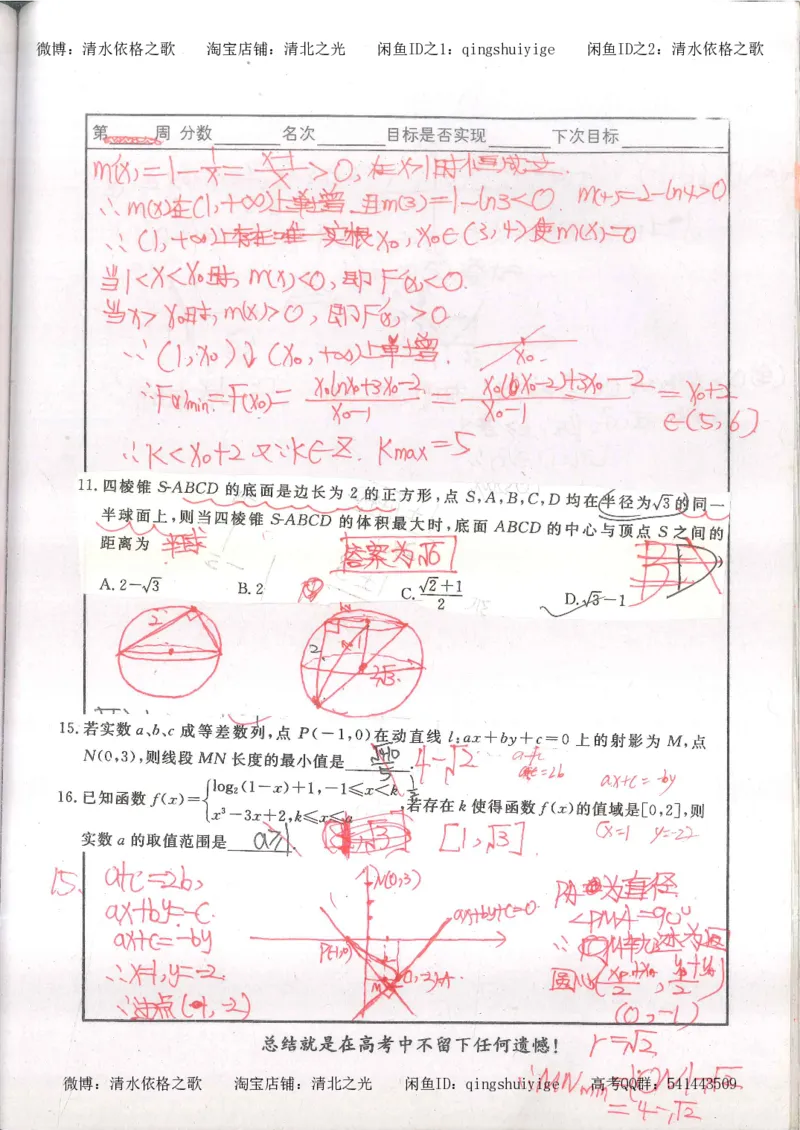 微博：清水依格之歌 淘宝店铺：清北之光 闲鱼ID之1：qingshuiyige 闲鱼ID之2：清水依格之歌
第 周 分数 名次 目标是否实现 下次目标
m'(x)=1-1/x=(x-1)/x>0,在x>1时恒成立.
∴m(x)在(1,+∞)上单增.且m(3)=1-ln3<0. m(4)=2-ln4>0
∴(1,+∞)上存在唯一实根x₀,x₀∈(3,4)使m(x)=0
当1<x<x₀时,m(x)<0,即F'(x)<0.
当x>x₀时,m(x)>0,即F'(x)>0
∵(1,x₀)↓(x₀,+∞)上单增. x₀
∴F(x)min=F(x₀)=(x₀lnx₀+3x₀-2)/(x₀-1)=(x₀(x₀-2)+3x₀-2)/(x₀-1)=x₀+2
∈(5,6)
∴k<x₀+2 又∵k∈Z. Kmax=5
11.四棱锥 S-ABCD 的底面是边长为 2 的正方形,点 S,A,B,C,D 均在半径为√3的同一
半球面上,则当四棱锥 S-ABCD 的体积最大时,底面 ABCD 的中心与顶点 S 之间的
距离为 半球 答案为√6
A.2-√3 B.2 C.(√2+1)/2 D.√3-1
2 2 1 √3
15.若实数 a、b、c 成等差数列,点 P(-1,0)在动直线 l:ax+by+c=0 上的射影为 M,点
N(0,3),则线段 MN 长度的最小值是 4-√2
a+c=2b ax+c=-by
16.已知函数 f(x)={log₂(1-x)+1,-1≤x<k
x³-3x+2,k≤x≤a ,若存在 k 使得函数 f(x)的值域是[0,2],则
x=1 y=-2
实数 a 的取值范围是 a≥1 [1,√3]
15. a+c=2b,
ax+by=-c.
ax+c=-by
∴x=1,y=-2.
∴过点(1,-2)
N(0,3)
ax+by+c=0
P(-1,0)
M
(1,-2)A
PA 为直径
∠PMA=90°
∴M轨迹为圆
圆心((xp+xA)/2,(yp+yA)/2)
(0,-1)
r=√2
∴MNmin=4-√2
=4-√2
总结就是在高考中不留下任何遗憾!
微博：清水依格之歌 淘宝店铺：清北之光 闲鱼ID：qingshuiyige 高考QQ群：541443509